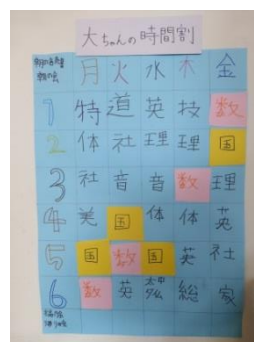 大ちゃんの時間割
月 火 水 木 金
1 特 道 英 技 数
2 体 社 理 理 国
3 社 音 音 数 理
4 美 国 体 体 英
5 国 数 国 英 社
6 数 英 総 家